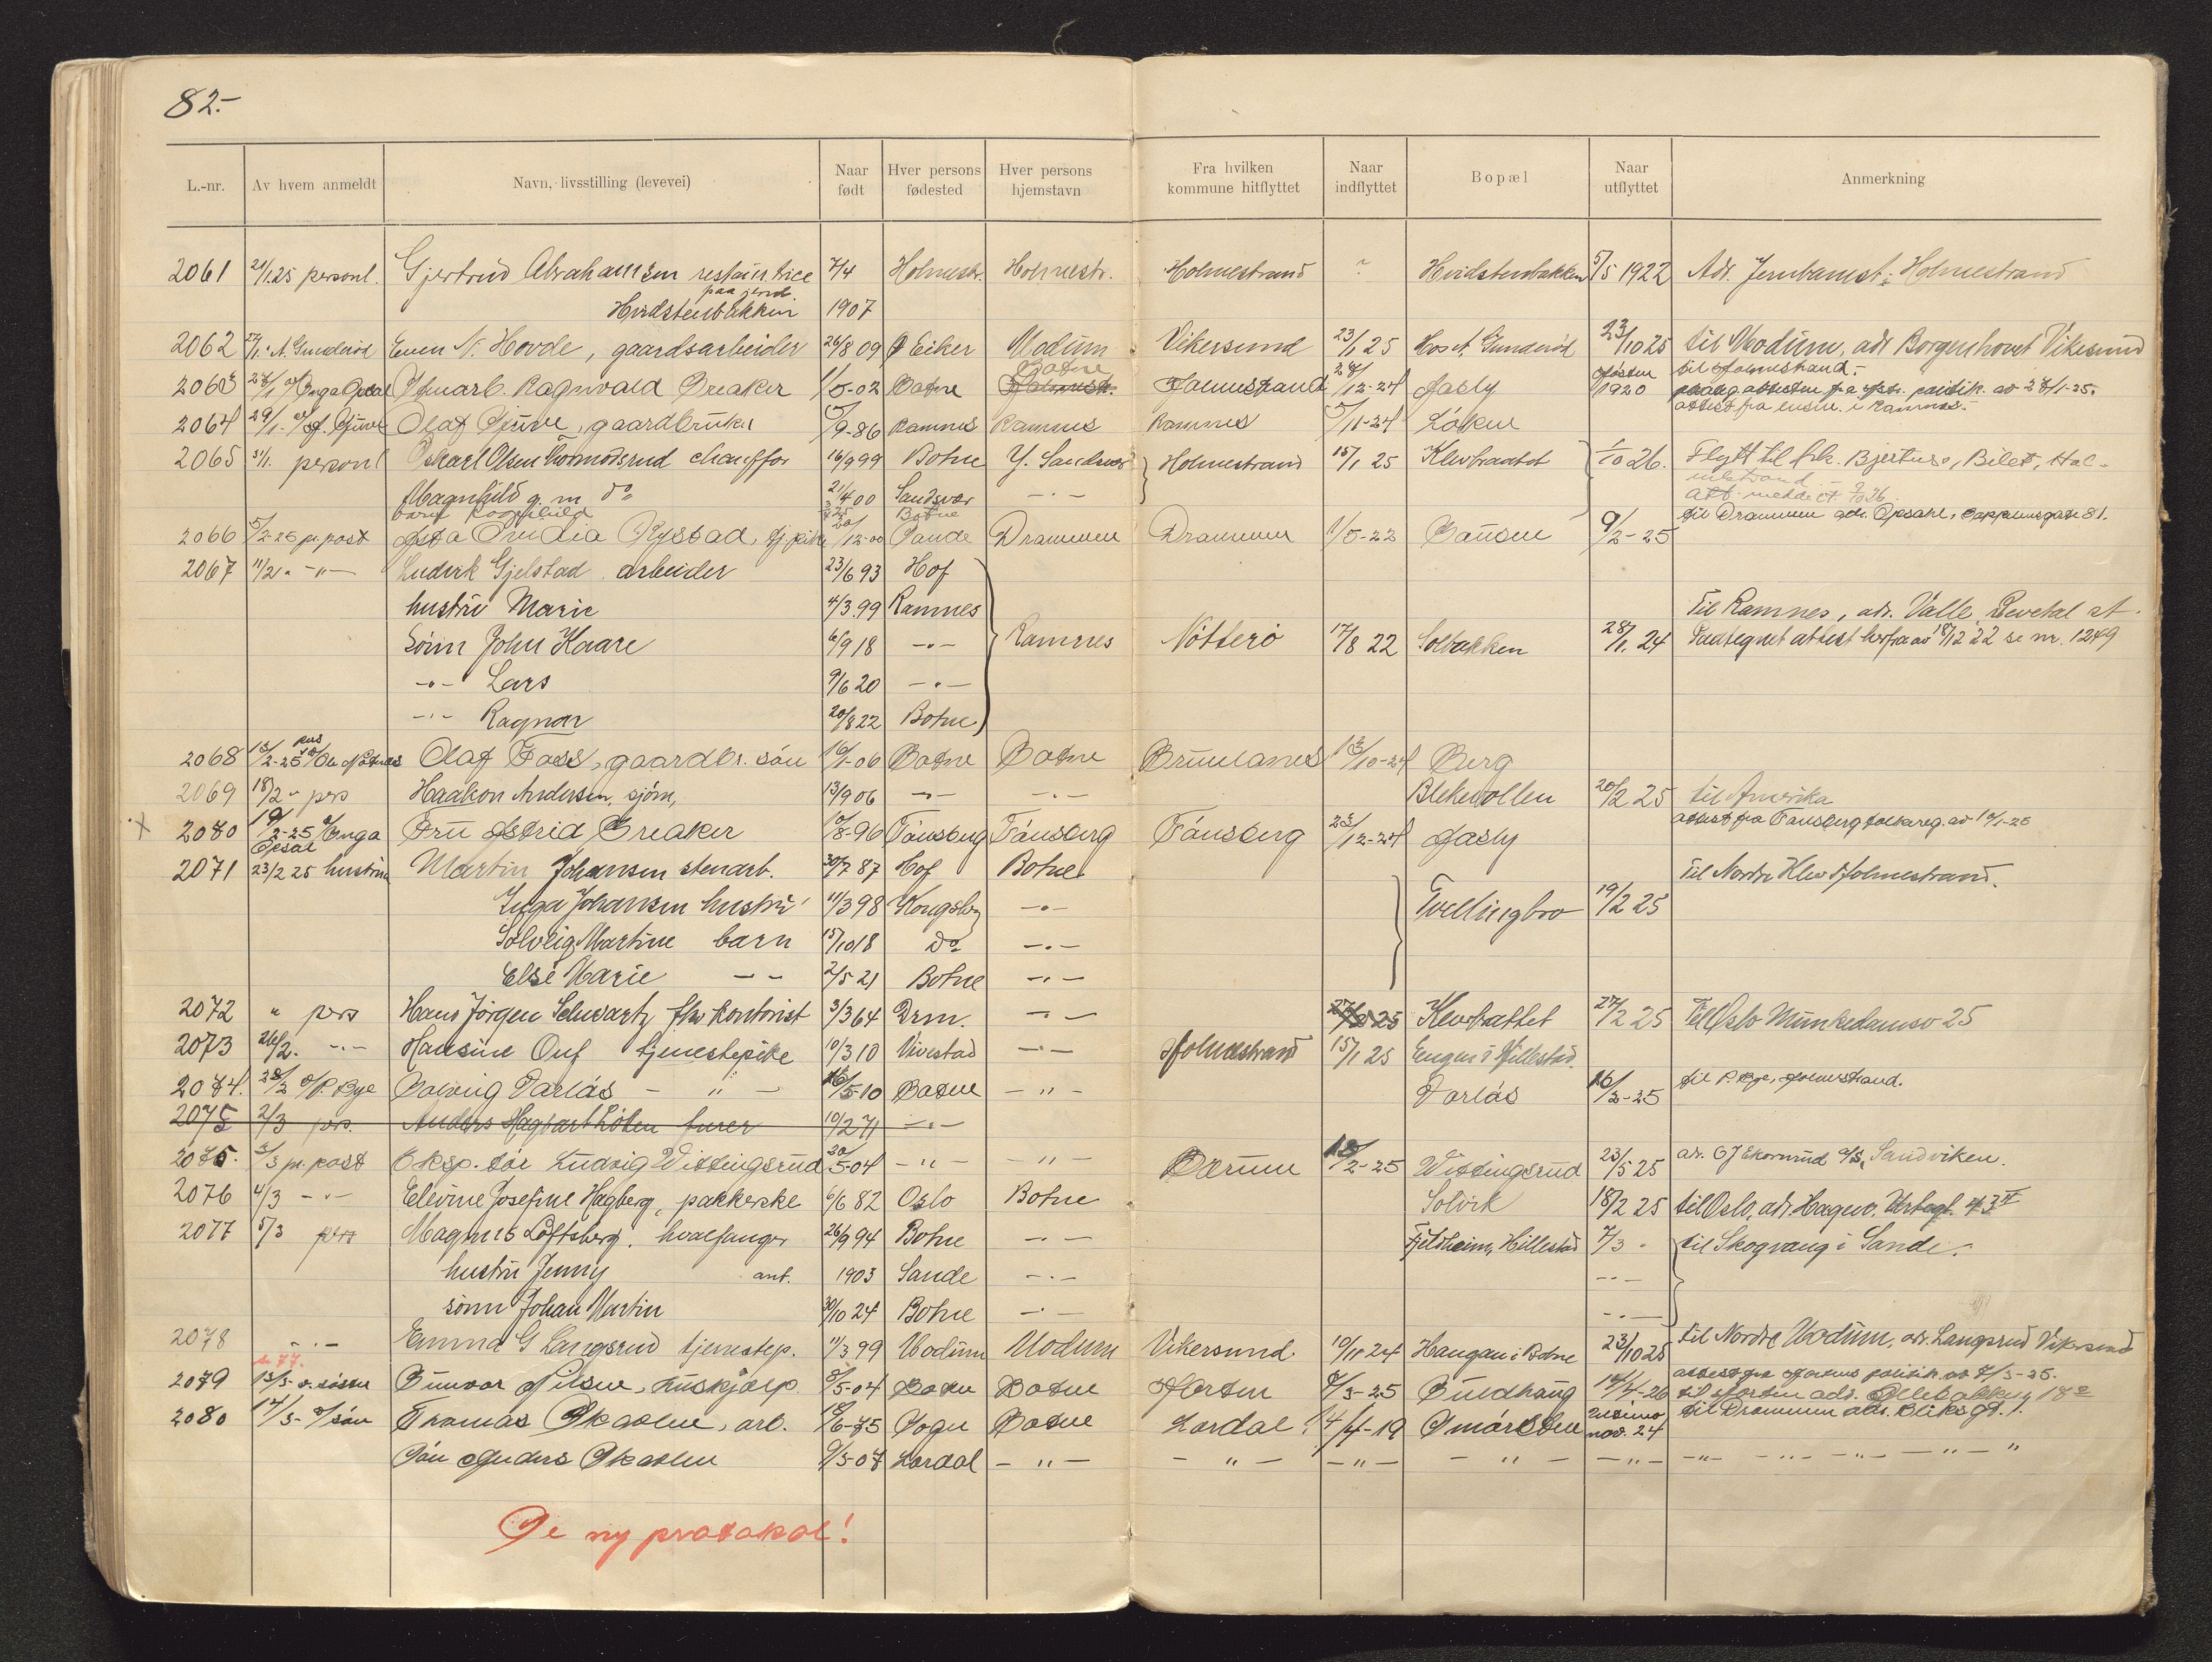 82.-
L.-nr. Av hvem anmeldt Navn, livsstilling (levevei) Naar født Hver persons fødested Hver persons hjemstavn Fra hvilken kommune hitflyttet Naar indflyttet Bopæl Naar utflyttet Anmerkning
2061 21/1.25 personl. Gjertrud Abrahamsen 7/4 Holmestr. Holmestr. Holmestrand ? Hvidstenbakken 5/5 1922 Adr. Jernbanest. Holmestrand
paa jernb.
Hvidstenbakken 1907
2062 A. Gunderød Even N. Hovde, gaardsarbeider 26/8 09 Ø Eiker Modum Vikersund 23/1 25 Hos A. Gunderød 23/10 25 til Modum, adr Borgenhovet Vikesund
Botne til Holmestrand.-
2063 Ragnvald Greaker 1/5-02 Botne Holmestr. Holmestrand 28/12-24 Høsten 1920
2064 29/1. Olaf Gjuve, gaardbruker 5/9-86 Ramnes Ramnes Ramnes 5/11-24 Løken
2065 31/1. personl Oskar Olsen Thormodsrud chauffør 16/9 99 Botne Y. Sandsvær Holmestrand 15/1 25 Klevbrattet 1/10 26. Flytt til frk. Bjertnes, Bilet, Hol-
mestrand
Magnhild g. m do 21/4 00 Sandsvær - " -
barn Ragnhild Botne
2066 5/2-25 pr. post Asta Ovidia Rystad, tj.pike 20/12-00 Sande Drammen Drammen 1/5-22 9/2-25 til Drammen adr. Opsahl, Cappelensgate 81.
2067 11/2 " - " - Ludvik Gjelstad arbeider 23/6 93 Hof
hustru Marie 4/3.99 Ramnes Til Ramnes, adr. Valle, Revetal st.
Sønn John Kaare 6/9 18 - " - Ramnes Nøtterø 17/8 22 Solbakken 28/1. 24 Paategnet attest herfra av 18/12 22 se nr. 1249
- " - Lars 9/6 20 - " -
- " - Ragnar 20/8 22 Botne
2068 13/2-25 Olaf Foss, gaardbr. søn 16/1-06 Botne Botne Brunlanes 13/10-24 Berg
2069 18/2 " pers Haakon Andersen, sjøm, 13/9 06 - " - - " - Blekevollen 20/2 25 til Amerika
x 2080 19/2-25 Inga Opsal Fru Astrid Greaker 10/8-96 Tønsberg Tønsberg Tønsberg 23/12-24 attest fra Tønsberg folkereg. av
2071 23/2 25 hustru Martin Johansen stenarb. 30/7 87 Hof Botne Til Nordre Klev Holmestrand.
Inga Johansen hustru 11/3 98 Kongsberg - " - Tvellingbro 19/2 25
Solveig Martine barn 15/10 18 do - " -
Else Marie - - 2/5 21 Botne - " -
2072 " pers Hans Jørgen Schwartz fhv kontorist 3/3 64 Drm. - " - 27/2 25 Klevbrattet 27/2 25 Til Oslo Munkedamsv 25
2073 26/2. - " - Hansine Ouf tjenestepike 10/3 10 Vivestad - " - Holmestrand 15/1 25 Engen i Hillestad.
2074. 28/2 P. Bye Solveig Dørlös - " - 16/5-10 Botne - " - Dørlös 16/2-25 til P. Bye, Holmestrand.
2075 2/3 pers. Anders Hagbart furer 10/2 71 - " -
2075. 2/3 pr. post Eksp. dør Ludvig Wittingsrud 20/5-04 - " - - " - Bærum 18/2-25 Wittingsrud 23/5 25 adr. A/S, Sandviken.
2076 4/3 - " - Elevine Josefine Hagberg, pakkerske 6/6 82 Oslo Botne Solvik 18/2 25 til Oslo, adr. 43 II
2077 5/3 pers Magnus Løftsberg, hvalfanger 26/9 94 Botne - " - Fjeldheim, Hillestad 7/3 - til Skogvang i Sande.
hustru Jenny ant. 1903 Sande - " - - " -
sønn Johan Martin 30/10 24 Botne - " - - " -
2078 - " - Emma G Langsrud tjenestep. 11/3 99 Modum Modum Vikersund 10/11 24 Haugan i Botne 23/10 25 til Nordre Modum, adr. Langsrud Vikesund
2079 søster Gunvor Nilsen, huskjælp 5/5-04 Botne Botne Horten 8/3-25 14/4-26 til Horten adr.
2080 søn Thomas Skatlen, arb. Botne Lardal 14/4-19 nov. 24 til Drammen adr.
Søn Anders Skatlen 9/5-07 Lardal - " - - " - - " - - " - - " - - " - - " - - " - - " -
Se ny protokol!